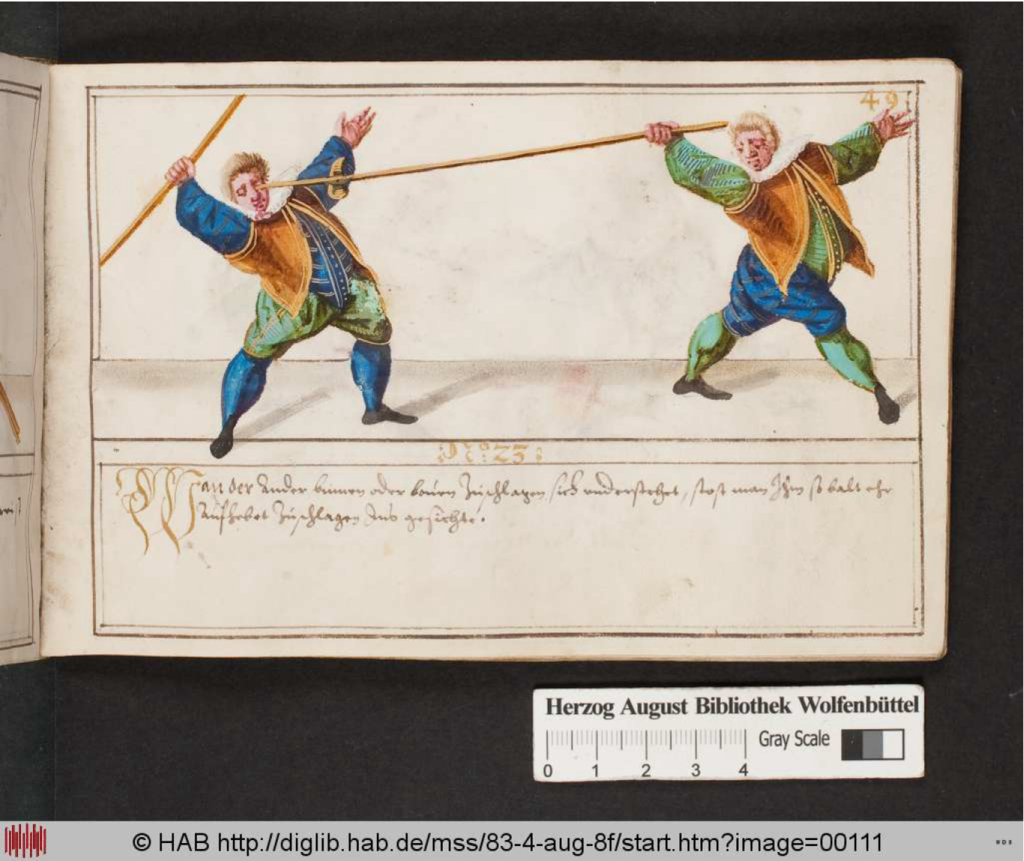 49
N° 23
Wan der ander binnen oder boven zuschlagen sich understehet, stost man Ihm so balt ehr
aufhebet zuschlagen Ins gesichte.
Herzog August Bibliothek Wolfenbüttel
Gray Scale
0 1 2 3 4
© HAB http://diglib.hab.de/mss/83-4-aug-8f/start.htm?image=00111